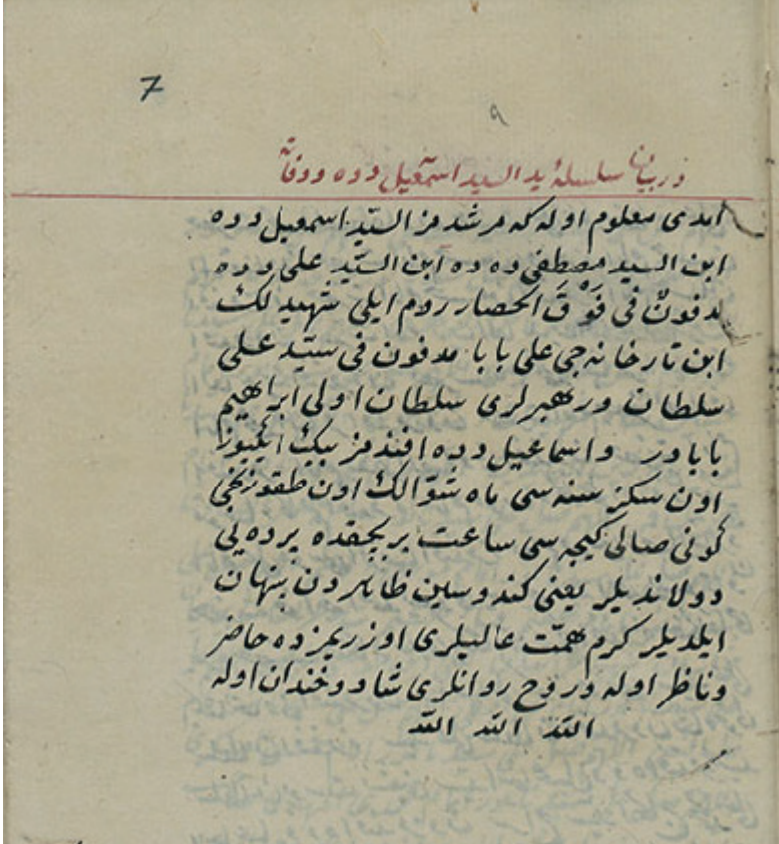 7
٩
در بیان سلسلۀ ید السید اسمعیل دده ووفاته
ایمدی معلوم اوله که مرشدمز السّید اسمعیل دده
ابن السید مصطفی دده ابن السّید علی دده
مدفونٌ فی فَوْقَ الحصار روم ایلی شهیدلك
ابن تارخانه جی علی بابا مدفون فی سیّد علی
سلطان ورهبرلری سلطان اولی ابراهیم
بابادر واسماعیل دده افندمز بیك ایکیوز
اون سکز سنه سی ماه شوّالك اون طقوزنجی
کونی صالی کیجه سی ساعت بر بچقده پرده یی
دولاندیلر یعنی کندوسین ظاهردن پنهان
ایلدیلر کرم همّت عالیلری اوزریمزده حاضر
وناظر اوله وروح روانلری شاد وخندان اوله
الله الله الله